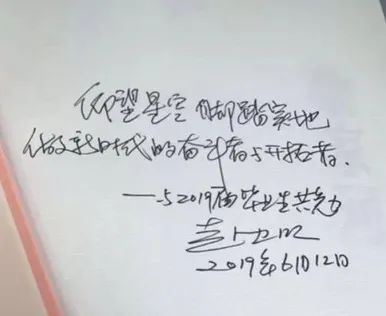 仰望星空 脚踏实地
做新时代的奋斗者与开拓者.
——与2019届毕业生共勉
2019年6月12日